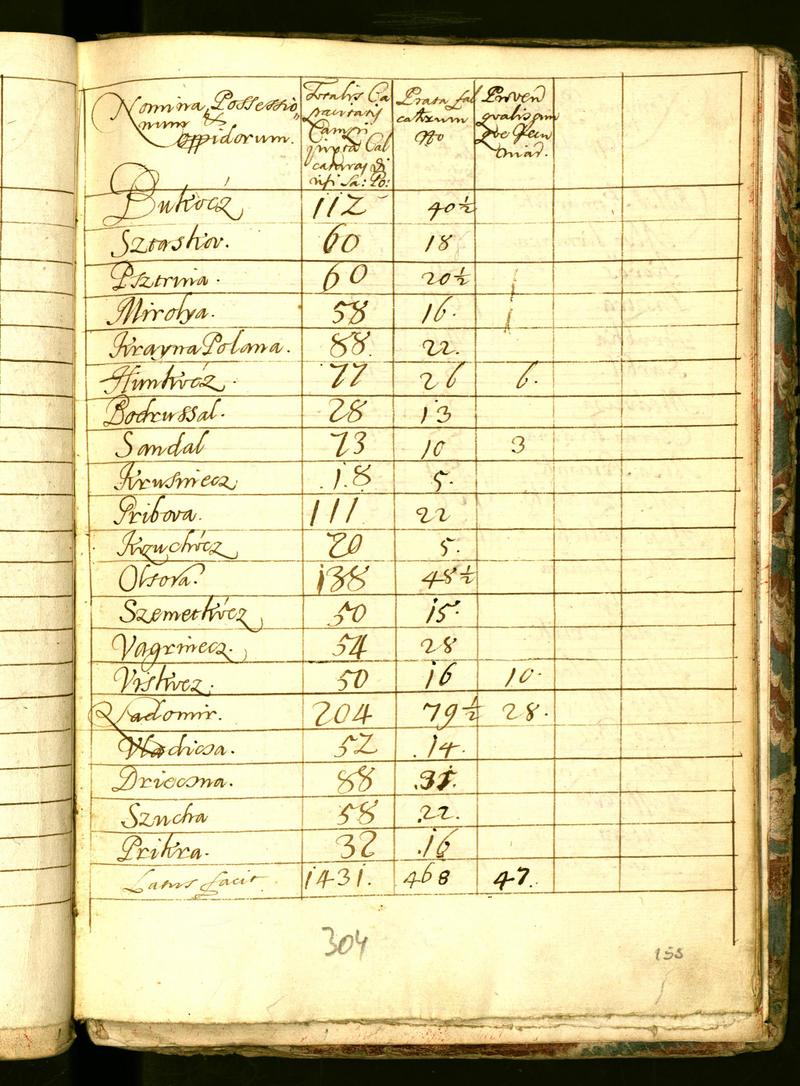 Nomina Possessio
num &
Oppidorum.
Totalis Ca
pacitatis
Campi
juxta Cal
caturas Di
Sa: Po:
Prata fal
catorum
No
Proven
qualiscun
que Pecu
niar.
Butkócz 112 40½
Sztaskov. 60 18
Psztrina. 60 20½
Mirolya. 58 16.
Krayna Polana. 88. 22.
Hunkócz. 77 26 6.
Bodrussal. 28 13
Sandal 73 10 3
Krusniecz 18 5.
Pribova. 111 22
Kozuchócz 20 5.
Olsova. 138 48½
Szemetkócz 50 15.
Vagrinecz. 54 28
Viskvcz. 50 16 10.
Ladomir. 204 79½ 28.
Vladicsa. 52 14.
Driecsna. 88 31.
Szucha 58 22.
Prikra. 32 16
Latus facit 1431. 468 47.
304
155